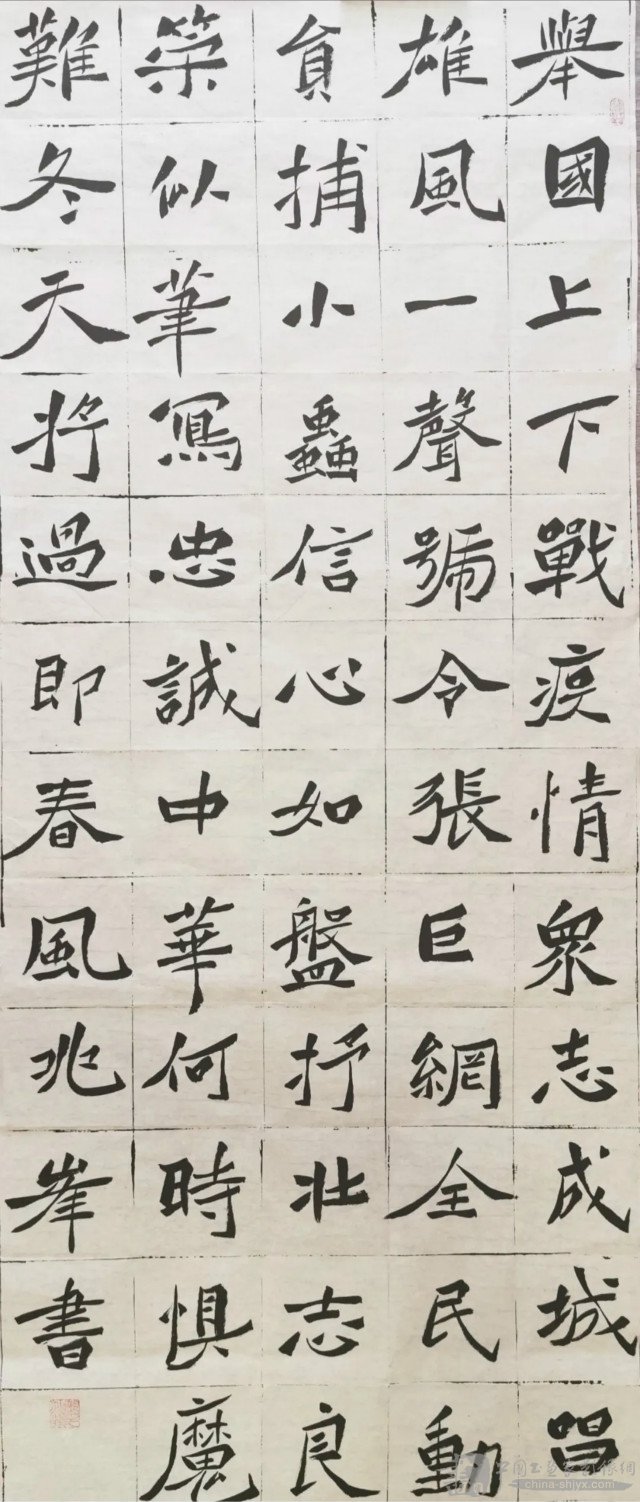 舉國上下戰疫情衆志成城昌
雄風一聲號令張巨網全民動
員捕小蟲信心如盤抒壯志良
策似筆寫忠誠中華何時懼魔
難冬天將過即春風兆峯書
china-shjyx.com